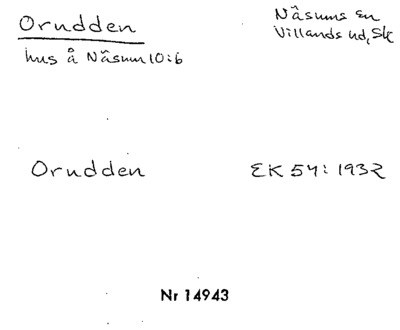 Orudden
Nåsums sn
Villands hd, Sk
hus å Nåsum 10:6
Orudden
EK 54: 1932
Nr 14943